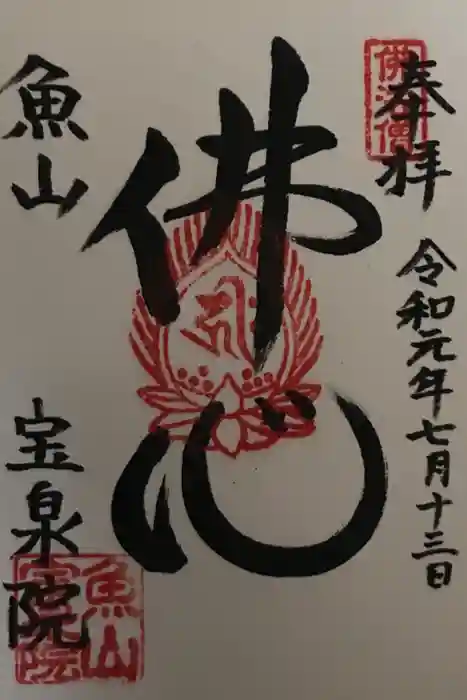 奉拝
令和元年七月十三日
佛心
魚山
宝泉院
佛法僧
魚山
宝泉院